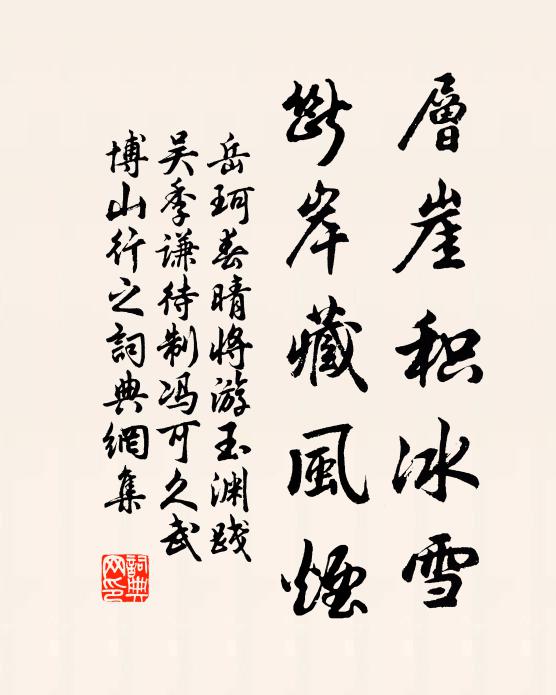 層崖积冰雪
断岸藏風煙
岳珂春晴將游玉渊践
吴季谦待制冯可久武
博山行之詞典網集
詞典网印